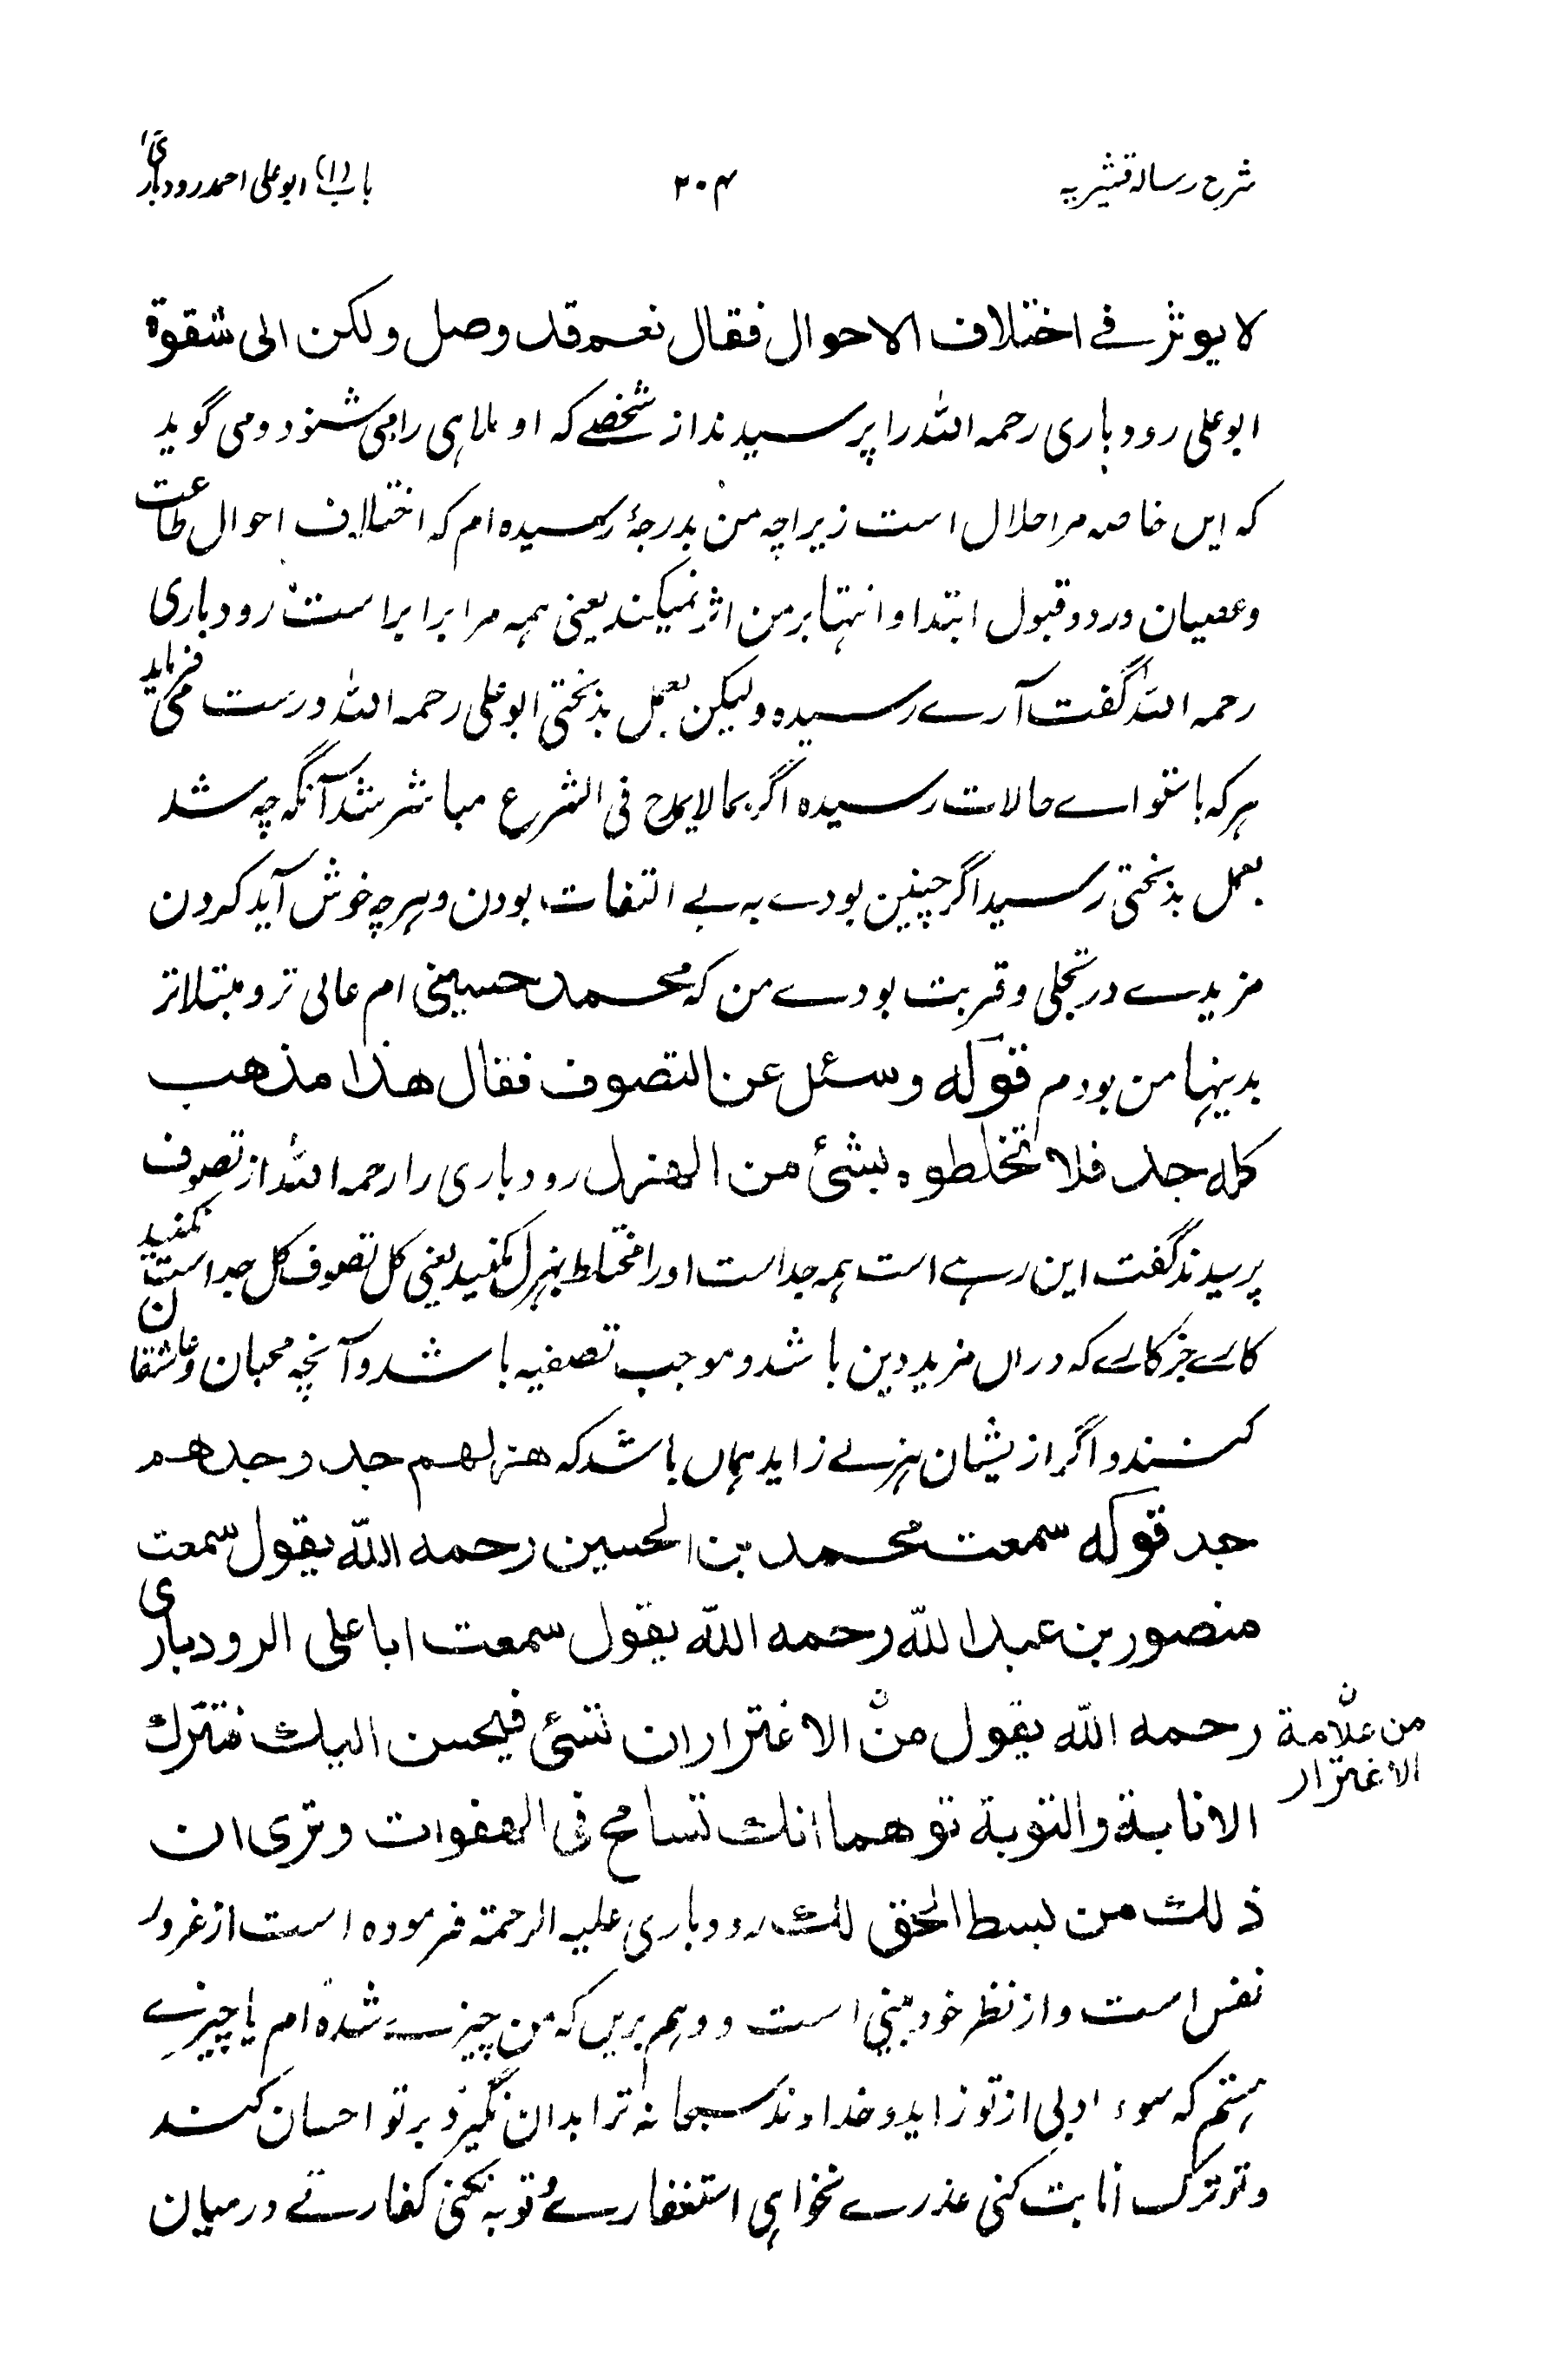 شرح رسالہ قشیریہ ۲۰۴ باب (۱) ابو علی احمد رودباریؒ
لا یوثر فے اختلاف الاحوال فقال نعم قد وصل ولکن الی شقوة
ابو علی رودباری رحمہ اللہ را پرسیدند از شخصے کہ او ملاہی را می شنود و می گوید
کہ ایں خاصہ مرا حلال است زیراچہ من بدرجۂ رسیدہ ام کہ اختلاف احوال طاعت
وعصیان ورد وقبول ابتدا وانتہا بر من اثر نمیکند یعنی ہمہ مرا برابر است رودباری
رحمہ اللہ گفت آرے رسیدہ ولیکن بعمل بدبختی ابو علی رحمہ اللہ درست می فرماید
ہرکہ باستواے حالات رسیدہ اگر بما لا یباح فی الشرع مباشر شد آنگہ چہ شد
بعمل بدبختی رسید اگر چنین بودے بہ بے التفات بودن وہرچہ خوش آید کردن
مزیدے در تجلی وقربت بودے من کہ محمد حسینی ام عالی تر و مبتلا تر
بدینہا من بودم قوله وسئل عن التصوف فقال هذا مذهب
كله جد فلا تخلطوه بشئ من الهزل رودباری را رحمہ اللہ از تصوف
پرسیدند گفت این رہے است ہمہ جد است اورا مختلط بہزل مکنید یعنی کل تصوف کل جد است نکنید
کارے جز کارے کہ دراں مزید دین باشد و موجب تصفیہ باشد و آنچہ محبان وعاشقان
کنند و اگر از یشان ہزلے زاید ہماں باشد کہ هزلهم جد وجدهم
جد قوله سمعت محمد بن الحسین رحمه الله یقول سمعت
منصور بن عبد الله رحمه الله یقول سمعت ابا علی الرودباری
رحمه الله یقول منْ الاغترار ان تسئ فیحسن الیك فتترك
من علامة
الاغترار
الانابة والتوبة توهما انك تسامح فی الهفوات وتری ان
ذلك من بسط الحق لك رودباری علیہ الرحمۃ فرمودہ است از غرور
نفس است و از نظر خود بینی است و وہم بریں کہ من چیزے شدہ ام یا چیزے
ہستم کہ سوء ادبی از تو زاید و خداوند سبحانہ ترا بدان نگیرد بر تو احسان کند
و تو ترک انابت کنی عذرے نخواہی استغفارے توبہ نکنی کفارتے درمیان